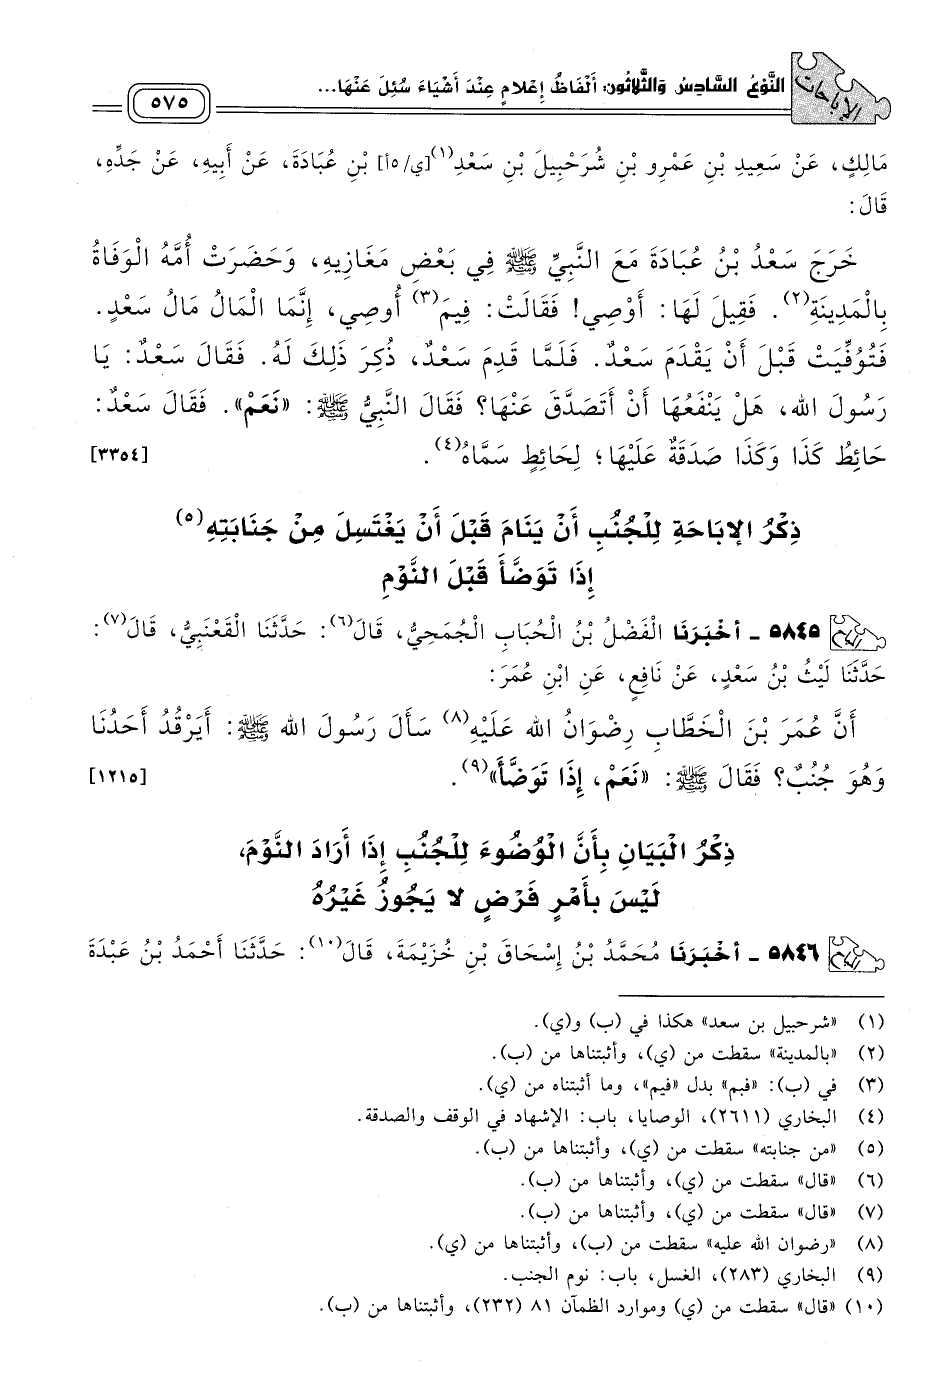 الإباحات
النَّوْعُ السَّادِسُ وَالثَّلاثُون: أَلْفَاظُ إِعْلامٍ عِنْدَ أَشْيَاءَ سُئِلَ عَنْهَا...
٥٧٥
مَالِكٍ، عَنْ سَعِيدِ بْنِ عَمْرِو بْنِ شُرَحْبِيلَ بْنِ سَعْدِ(١)[ي/٥أ] بْنِ عُبَادَةَ، عَنْ أَبِيهِ، عَنْ جَدِّهِ،
قَالَ:
خَرَجَ سَعْدُ بْنُ عُبَادَةَ مَعَ النَّبِيِّ ﷺ فِي بَعْضِ مَغَازِيهِ، وَحَضَرَتْ أُمَّهُ الْوَفَاةُ
بِالْمَدِينَةِ(٢). فَقِيلَ لَهَا: أَوْصِي! فَقَالَتْ: فِيمَ(٣) أُوصِي، إِنَّمَا الْمَالُ مَالُ سَعْدٍ.
فَتُوُفِّيَتْ قَبْلَ أَنْ يَقْدَمَ سَعْدٌ. فَلَمَّا قَدِمَ سَعْدٌ، ذُكِرَ ذَلِكَ لَهُ. فَقَالَ سَعْدٌ: يَا
رَسُولَ الله، هَلْ يَنْفَعُهَا أَنْ أَتَصَدَّقَ عَنْهَا؟ فَقَالَ النَّبِيُّ ﷺ: «نَعَمْ». فَقَالَ سَعْدٌ:
حَائِطُ كَذَا وَكَذَا صَدَقَةٌ عَلَيْهَا؛ لِحَائِطٍ سَمَّاهُ(٤). [٣٣٥٤]
ذِكْرُ الإبَاحَةِ لِلْجُنُبِ أَنْ يَنَامَ قَبْلَ أَنْ يَغْتَسِلَ مِنْ جَنَابَتِهِ(٥)
إِذَا تَوَضَّأَ قَبْلَ النَّوْمِ
٥٨٤٥ ـ أخْبَرَنَا الْفَضْلُ بْنُ الْحُبَابِ الْجُمَحِيُّ، قَالَ(٦): حَدَّثَنَا الْقَعْنَبِيُّ، قَالَ(٧):
حَدَّثَنَا لَيْثُ بْنُ سَعْدٍ، عَنْ نَافِعٍ، عَنِ ابْنِ عُمَرَ:
أَنَّ عُمَرَ بْنَ الْخَطَّابِ رِضْوَانُ الله عَلَيْهِ(٨) سَأَلَ رَسُولَ الله ﷺ: أَيَرْقُدُ أَحَدُنَا
وَهُوَ جُنُبٌ؟ فَقَالَ ﷺ: «نَعَمْ، إِذَا تَوَضَّأَ»(٩). [١٢١٥]
ذِكْرُ الْبَيَانِ بِأَنَّ الْوُضُوءَ لِلْجُنُبِ إِذَا أَرَادَ النَّوْمَ،
لَيْسَ بِأَمْرِ فَرْضٍ لا يَجُوزُ غَيْرُهُ
٥٨٤٦ ـ أخْبَرَنَا مُحَمَّدُ بْنُ إِسْحَاقَ بْنِ خُزَيْمَةَ، قَالَ(١٠): حَدَّثَنَا أَحْمَدُ بْنُ عَبْدَةَ
(١) «شرحبيل بن سعد» هكذا في (ب) و(ي).
(٢) «بالمدينة» سقطت من (ي)، وأثبتناها من (ب).
(٣) في (ب): «فبم» بدل «فيم»، وما أثبتناه من (ي).
(٤) البخاري (٢٦١١)، الوصايا، باب: الإشهاد في الوقف والصدقة.
(٥) «من جنابته» سقطت من (ي)، وأثبتناها من (ب).
(٦) «قال» سقطت من (ي)، وأثبتناها من (ب).
(٧) «قال» سقطت من (ي)، وأثبتناها من (ب).
(٨) «رضوان الله عليه» سقطت من (ب)، وأثبتناها من (ي).
(٩) البخاري (٢٨٣)، الغسل، باب: نوم الجنب.
(١٠) «قال» سقطت من (ي) وموارد الظمآن ٨١ (٢٣٢)، وأثبتناها من (ب).